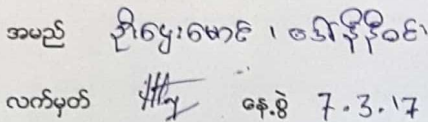 အမည် ဦးငွေးမောင် ၊ ဒေါ်နီနီဝင်း
လက်မှတ် နေ့စွဲ 7.3.17